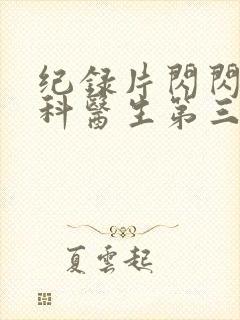 纪録片閃閃
科醫生第三
夏雲起